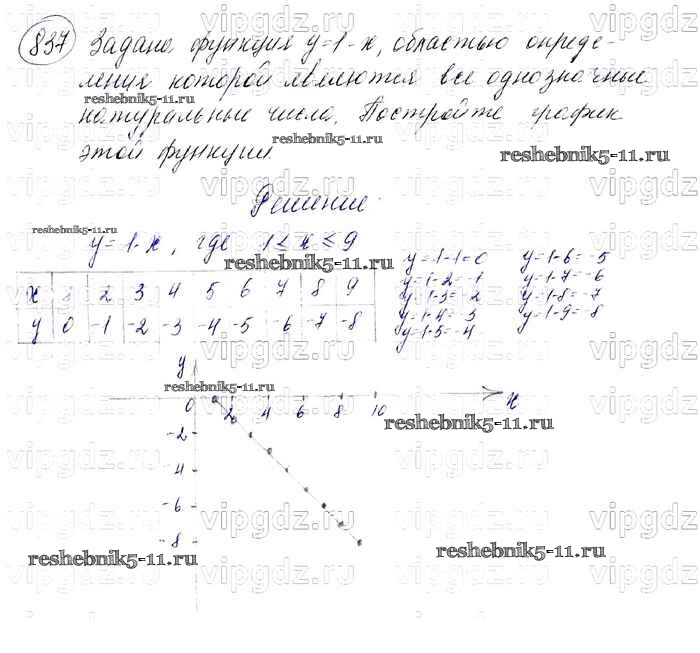 837 Задана функция y=1-x, областью опреде-
ления которой являются все однозначные
reshebnik5-11.ru
натуральные числа. Постройте график
reshebnik5-11.ru
этой функции.
reshebnik5-11.ru
Решение.
reshebnik5-11.ru
y=1-x, где 1≤x≤9
reshebnik5-11.ru
y=1-1=0 y=1-6=-5
y=1-2=-1 y=1-7=-6
y=1-3=-2 y=1-8=-7
y=1-4=-3 y=1-9=-8
y=1-5=-4
x 1 2 3 4 5 6 7 8 9
y 0 -1 -2 -3 -4 -5 -6 -7 -8
y
reshebnik5-11.ru
0 2 4 6 8 10 x
reshebnik5-11.ru
-2
-4
-6
-8
reshebnik5-11.ru
reshebnik5-11.ru
vipgdz.ru